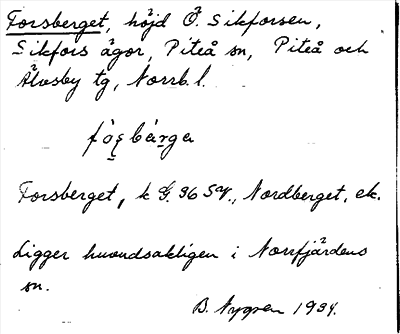 Forsberget, höjd Ö. Sikforsen,
Sikfors ägor, Piteå sn, Piteå och
Älvsby tg, Norrb. l.
Forsberget, k G. 36 SV., Nordberget, ek.
Ligger huvudsakligen i Norrfjärdens
sn.
B. Nygren 1934.